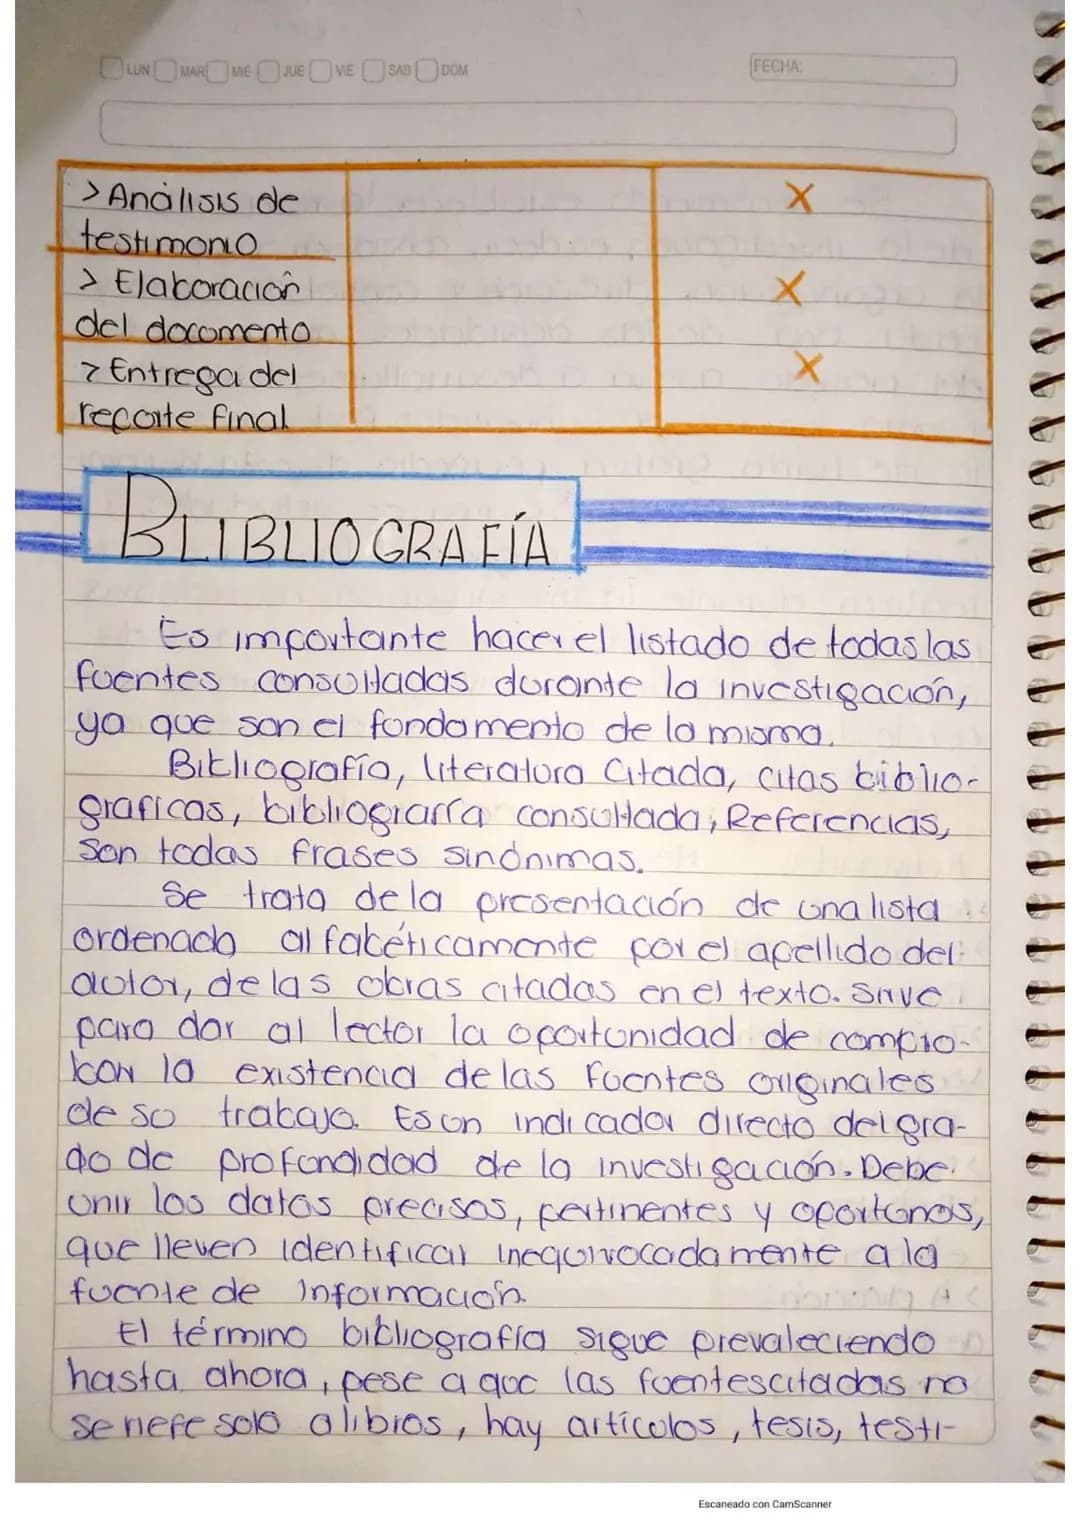 LUN MAR MIE JUE VIE SAB DOM FECHA:
> Análisis de X
testimonio
> Elaboración X
del documento
> Entrega del X
reporte final
BLIBLIOGRAFÍA
Es importante hacer el listado de todas las
fuentes consultadas durante la investigación,
ya que son el fundamento de la misma.
Bibliografía, literatura Citada, citas biblio-
graficas, bibliografía consultada, Referencias,
Son todas frases sinónimas.
Se trata de la presentación de una lista
ordenada alfabéticamente por el apellido del
autor, de las obras citadas en el texto. Sirve
para dar al lector la oportunidad de compro-
bar la existencia de las fuentes originales
de su trabajo. Es un indicador directo del gra-
do de profundidad de la investigación. Debe
unir los datos precisos, pertinentes y oportunos,
que lleven identificar inequivocadamente a la
fuente de Información.
El término bibliografía sigue prevaleciendo
hasta ahora, pese a que las fuentes citadas no
se refe solo a libros, hay artículos, tesis, testi-
Escaneado con CamScanner